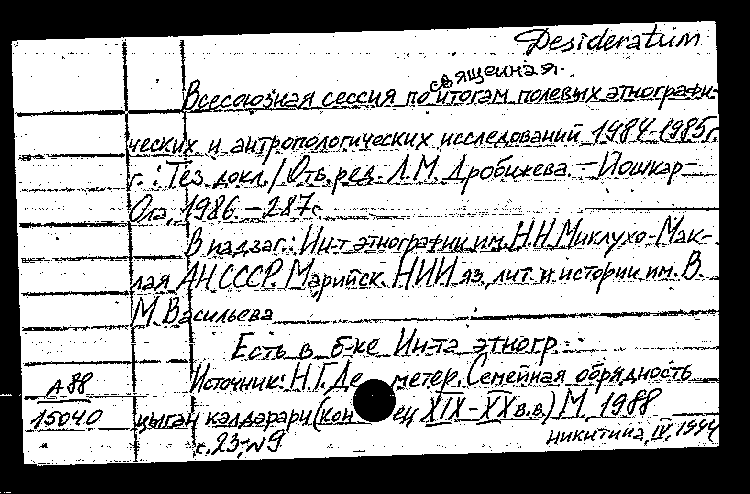 Desideratum
священная.
Всесоюзная сессия по итогам полевых этнографи-
ческих и антропологических исследований 1984-1985г.
г.: Тез. докл. / Отв. ред. Л.М. Дробижева. – Йошкар-
Ола, 1986. – 287с.
В надзаг.: Ин-т этнографии им. Н.Н Миклухо-Мак-
лая АН СССР. Марийск. НИИ яз. лит. и истории им. В.
М. Васильева
Есть в б-ке Ин-та этногр.
Источник: Н.Г. Деметер. Семейная обрядность
цыган кэлдэрари (конец XIX-XX в.в.) М 1988
с. 23, N9
А 88
15040
никитина, IV, 1994